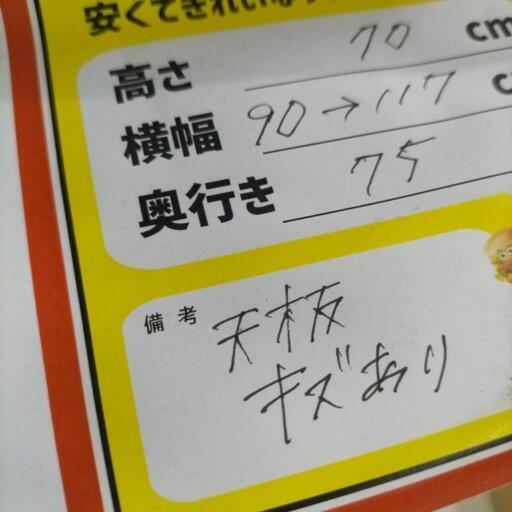 安くてきれいな
高さ 70 cm
横幅 90→117 c
奥行き 75
備考
天板
キズあり